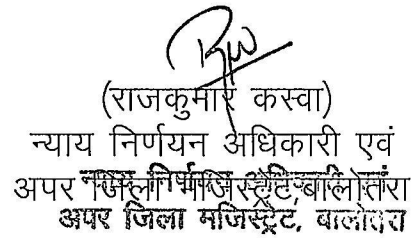 (राजकुमार कस्वा)
न्याय निर्णयन अधिकारी एवं
अपर जिला मजिस्ट्रेट, बालोतरा
अपर जिला मजिस्ट्रेट, बालोतरा